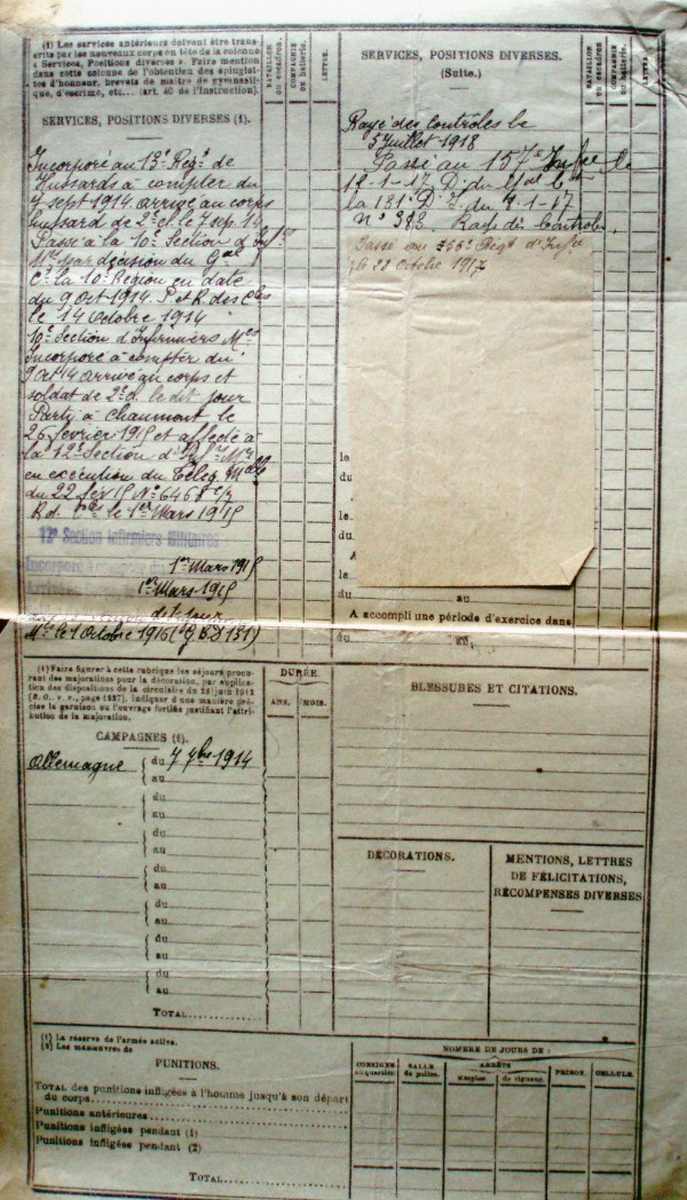 (1) Les services antérieurs doivent être trans-
crits par les nouveaux corps en tête de la colonne
« Services, Positions diverses ». Faire mention
dans cette colonne de l'obtention des épinglet-
tes d'honneur, brevets de maître de gymnasti-
que, d'escrime, etc... (art. 40 de l'Instruction).
BATAILLON
ou escadron.
COMPAGNIE
ou batterie.
LETTRE.
SERVICES, POSITIONS DIVERSES (1).
Incorporé au 13e Regt de
Hussards à compter du
7 sept 1914 arrivé au corps
hussard de 2e cl. le 7 sep. 14
Passé à la 10e Section d'Inf
décision du Gal
Ct la 10e Région en date
du 9 Oct 1914. P et R des
le 14 Octobre 1914
10e Section d'Infirmiers
Incorporé à compter du
9 Oct 14 arrivé au corps et
soldat de 2e cl. le dit jour
Parti à Chaumont le
26 février 1915 et affecté à
la 12e Section d'Inf
en exécution du Télég.
du 22 fév 15 No 6468
le 1er Mars 1915
12e Section Infirmiers Militaires
Incorporé à compter du 1er Mars 1915
1er Mars 1915
dit jour
le 1 Octobre 1916 (G B D 131)
SERVICES, POSITIONS DIVERSES.
(Suite.)
BATAILLON
ou escadron
COMPAGNIE
ou batterie.
LETTRE
Rayé des Contrôles le
5 Juillet 1918
Passé au 157e le
12-1-17 D. du
la 131e D. I. du 9-1-17
No 383. Rayé des Contrôles.
Passé au Régt d'Infie
le 28 Octobre 1917
le
du
le
du
A
le
du
au
A accompli une période d'exercice dans
du
au
(1) Faire figurer à cette rubrique les séjours procu-
rant des majorations pour la décoration, par applica-
tion des dispositions de la circulaire du 28 juin 1912
(B. O., v. v., page 1237), indiquer d'une manière pré-
cise la garnison ou l'ouvrage fortifié justifiant l'attri-
bution de la majoration.
CAMPAGNES (1).
DURÉE.
ANS.
MOIS.
Allemagne du 7 7bre 1914
au
du
au
du
au
du
au
du
au
du
au
du
au
TOTAL
BLESSURES ET CITATIONS.
DÉCORATIONS.
MENTIONS, LETTRES
DE FÉLICITATIONS,
RÉCOMPENSES DIVERSES
(1) La réserve de l'armée active.
(2) Les manœuvres de
PUNITIONS.
NOMBRE DE JOURS DE :
CONSIGNE
au quartier.
SALLE
de police.
ARRÊTS
simples
de rigueur.
PRISON.
CELLULE.
TOTAL des punitions infligées à l'homme jusqu'à son départ
du corps
Punitions antérieures
Punitions infligées pendant (1)
Punitions infligées pendant (2)
TOTAL